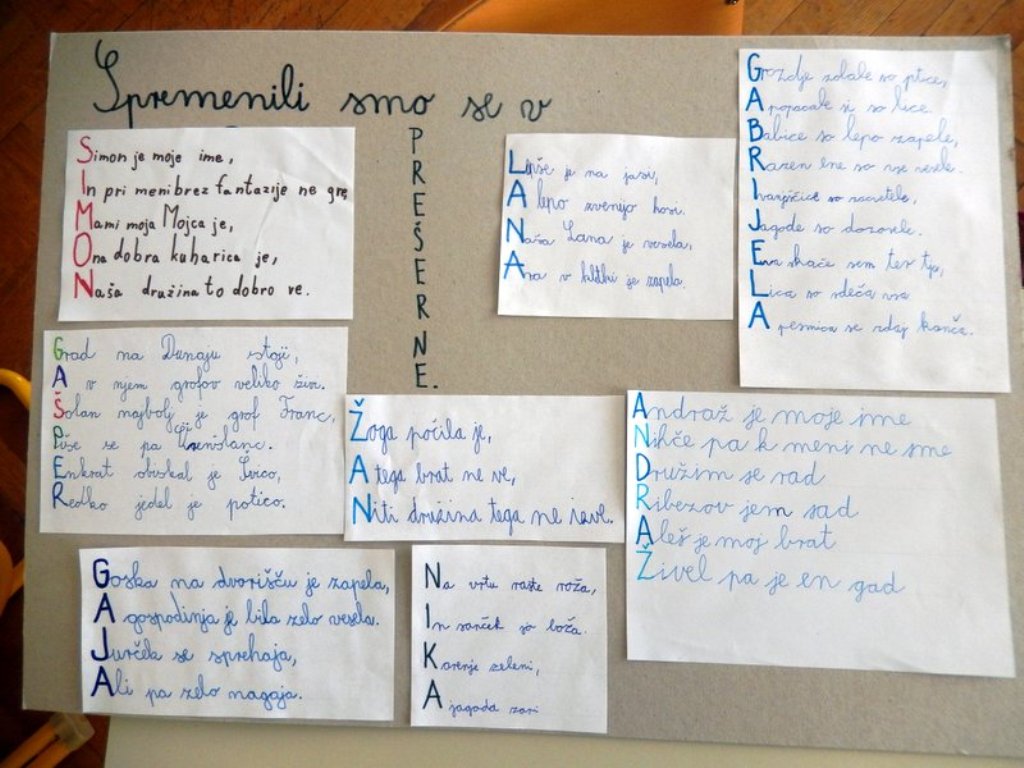 Spremenili smo se v
PREŠERNE.
Simon je moje ime,
In pri meni brez fantazije ne gre,
Mami moja Mojca je,
Ona dobra kuharica je,
Naša družina to dobro ve.
Lepše je na jasi,
A lepo zvenijo kosi.
Naša Lana je vesela,
Ana v kletki je zapela.
Grozdje zobale so ptice,
A popacale si so lice.
Babice so lepo zapele,
Razen ene so vse vesele.
Ivanjščice so zacvetele,
Jagode so dozorele.
Eva skače sem ter tja,
Lica so rdeča vsa
A pesmica se zdaj konča.
Grad na Dunaju stoji,
A v njem grofov veliko živi.
Šolan najbolj je grof Franc,
Piše se pa
Enkrat obiskal je Švico,
Redko jedel je potico.
Žoga počila je,
A tega brat ne ve,
Niti družina tega ne izve.
Andraž je moje ime
Nihče pa k meni ne sme
Družim se rad
Ribezov jem sad
Aleš je moj brat
Živel pa je en gad
Goska na dvorišču je zapela,
A gospodinja je bila zelo vesela.
Jurček se sprehaja,
Ali pa zelo nagaja.
Na vrtu raste roža,
In sonček jo boža.
Korenje zeleni,
A jagoda zori